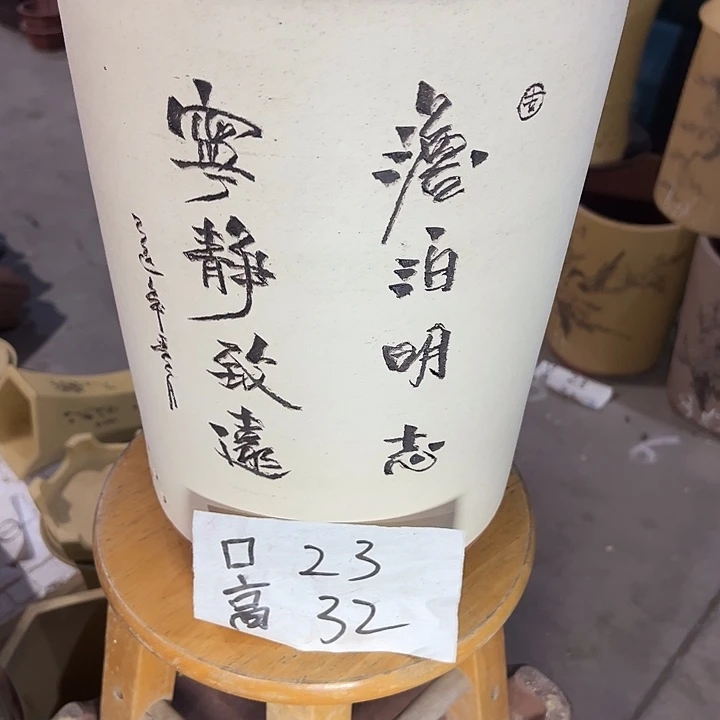 澹泊明志
寧静致遠
口 23
高 32